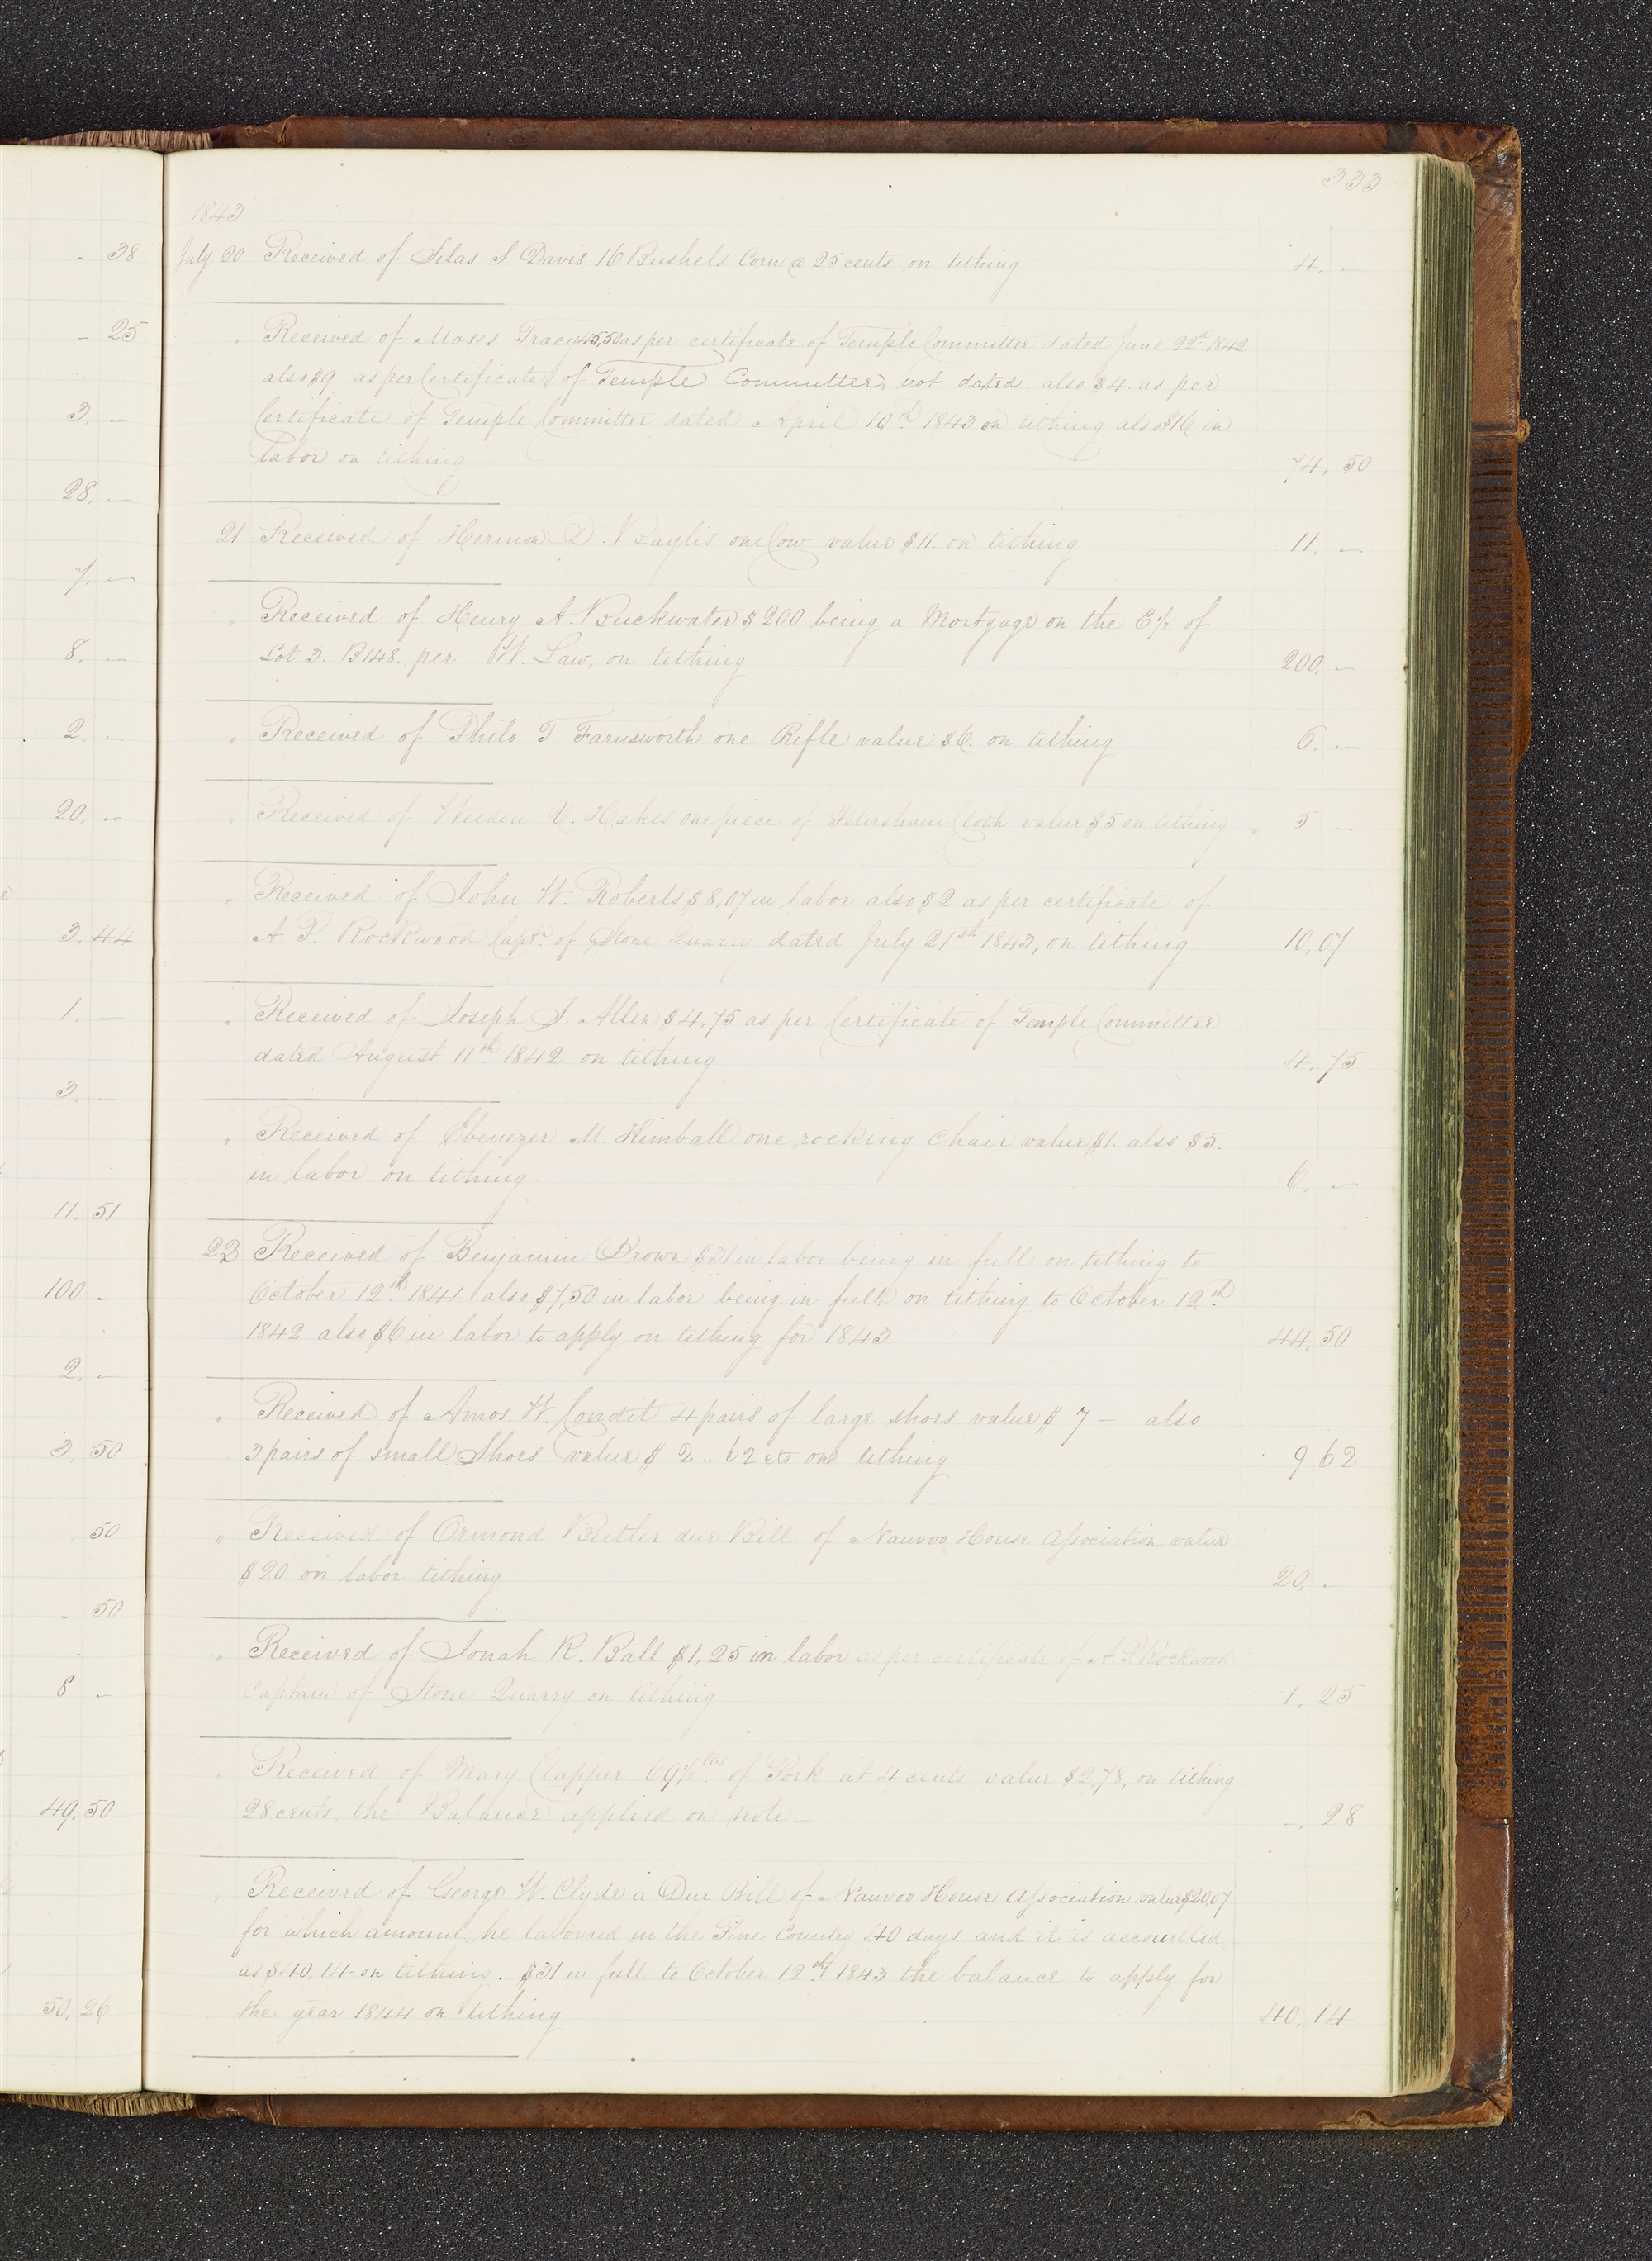 333
1843
July 20 Received of Silas S. Davis 16 Bushels Corn @ 25 cents on tithing 4. –
" Received of Moses Tracy 45,50 as per certificate of Temple Committee dated June 22d. 1842
also $9 as per Certificate of Temple Committee not dated. also $4. as per
Certificate of Temple Committee dated April 10th. 1843 on tithing also $16 in
labor on tithing 74. 50
21 Received of Hermon D. Baylis one Cow value $11. on tithing 11. –
" Received of Henry A. Buckwater $200 being a Mortgage on the E 1/2 of
Lot 3. B 148. per W. Law, on tithing 200. –
" Received of Philo T. Farnsworth one Rifle value $6. on tithing 6. –
" Received of Weeden V. Hakes one piece of Petersham Cloth value $5 on tithing 5 –
" Received of John W. Roberts $8,07 in labor also $2 as per certificate of
A. P. Rockwood Capt. of Stone Quarry dated July 21st. 1843, on tithing. 10,07
" Received of Joseph S. Allen $4,75 as per Certificate of Temple Committee
dated August 11th. 1842 on tithing 4. 75
" Received of Ebenezer M. Kimball one rocking Chair value $1. also $5.
in labor on tithing. 6. –
22 Received of Benjamin Brown $31 in labor being in full on tithing to
October 12th. 1841 also $7,50 in labor being in full on tithing to October 12th.
1842 also $6 in labor to apply on tithing for 1843. 44,50
" Received of Amos. W. Condit 4 pairs of large shoes value $ 7 – also
3 pairs of small Shoes value $ 2 .. 62 cts on tithing 9 62
" Received of Ormond Butler due Bill of Nauvoo House Association value
$20 on labor tithing 20. –
" Received of Jonah R. Ball $1,25 in labor as per certificate of A. P. Rockwood
Captain of Stone Quarry on tithing 1. 25
" Received of Mary Clapper 69 1/2 lbs. of Pork at 4 cents value $2,78, on tithing
28 cents, the Balance applied on note – –. 28
" Received of George W. Clyde a Due Bill of Nauvoo House Association value $20,07
for which amount he laboured in the Pine Country 40 days. and it is accounted
as $40.14 on tithing. $31 in full to October 12th 1843 the balance to apply for
the year 1844 on tithing 40. 14
. 38
– 25
3. –
28. –
7. –
8. –
2. –
20. –
3,44
1. –
3. –
11. 51
100 –
2. –
3. 50
50
. 50
8 –
49,50
50. 26